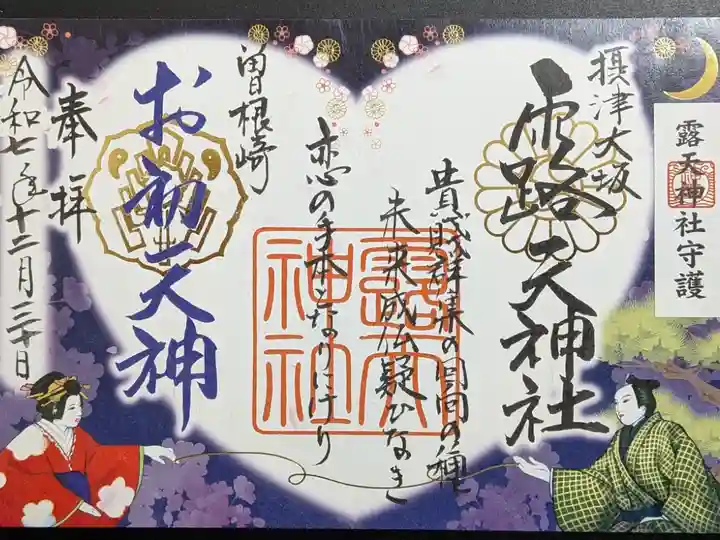 摂津大坂
露天神社
露天神社守護
貴賎群集の回向の種
未来成仏疑ひなき
恋の手本となりにけり
露天
神社
曽根崎
お初天神
奉拝
令和七年十二月三十日